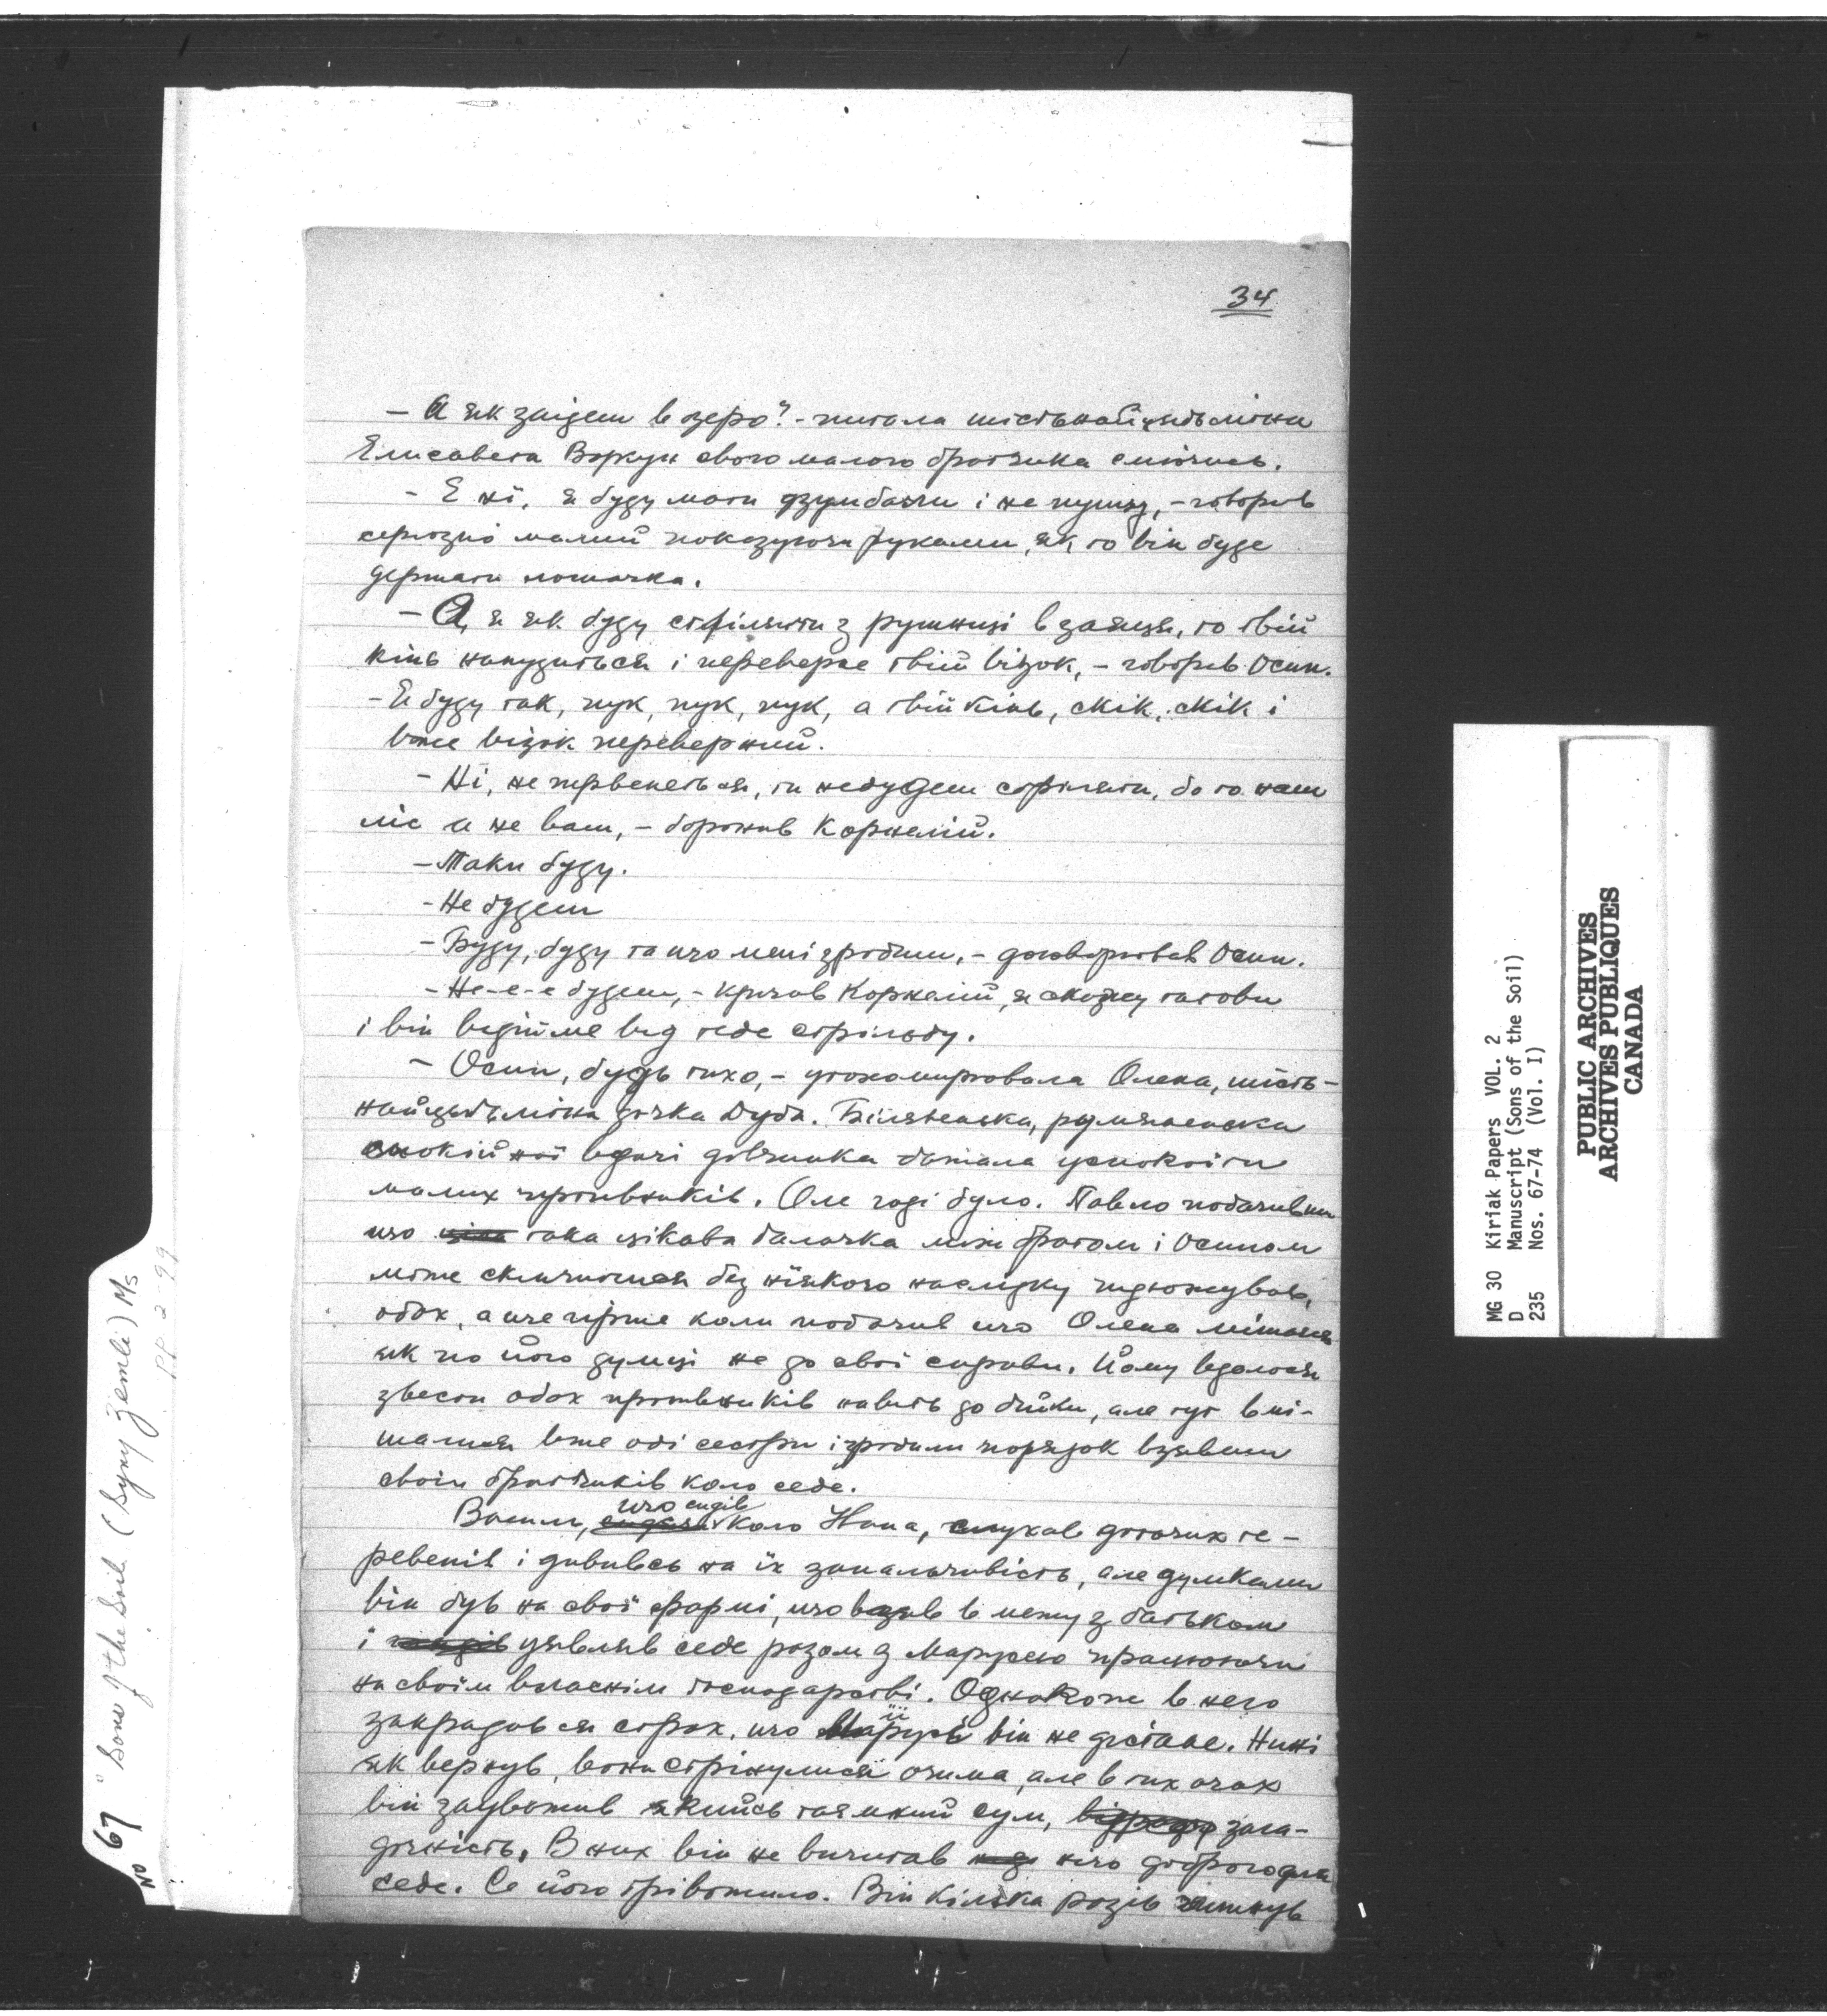 34
— А як заідеш в озеро? - питала шістьнайцятьлітна
Елисавета Воркун свого малого братчика сміючись.
- Е ні, я буду мати дзумбаччи і не пущу, - говорив
серіозно малий показуючи руками, як то він буде
держати лошачка.
— А, я як буду стріляти з рушниці в заяця, то твій
кінь напудиться і переверне твій візок, - говорив Осип.
- Я буду так, пук, пук, пук, а твій кінь, скік, скік і
вже візок переверний.
- Ні, не перевенеться, ти небудеш стріляти, бо то наш
ліс а не ваш, - боронив Корнелій.
- Таки буду.
- Не будеш
- Буду, буду та що мені зробиш, - договорював Осип.
- Не-е-е будеш, - кричав Корнелій, я скожу татови
і він відійме від тебе стрільбу.
- Осип, будь тихо, - утохомирювала Олена, шість-
найцятьлітна дочка Дуба. Білявенька, румяненька
спокійної вдачі дівчинка бажала успокоїти
малих противників. Але годі було. Павло побачивши
що така цікава балачка між братом і Осипом
може скінчитися без ніякого наслідку підюжував,
обох, а ще гірше коли побачив що Олена мішаєся
як по його думці не до свої справи. Йому вдалося
звести обох противників навіть до бійки, але тут вмі-
шалися вже обі сестри і зробили порядок взявши
своїх братчиків коло себе.
Василь, що сидів коло Йона, слухав доточих те-
ревенів і дививсь на їх запальчивість, але думками
він був на свої фармі, що взяв в межу з батьком
і уявляв себе разом з Марусею працюючи
на своїм власнім господарстві. Однакоже в него
закрадався страх, що її він не дістане. Нині
як вернув, вони стрінулися очима, але в тих очах
він зауважив якийсь таємний сум, зага-
дочність. В них він не вичитав нічо доброго для
себе. Се його трівожило. Він кілька разів
No 67 "Sons of the Soil (Syny Zemli) Ms
pp 2-99
MG 30 Kiriak Papers VOL. 2
D Manuscript (Sons of the Soil)
235 Nos. 67-74 (Vol. I)
PUBLIC ARCHIVES
ARCHIVES PUBLIQUES
CANADA